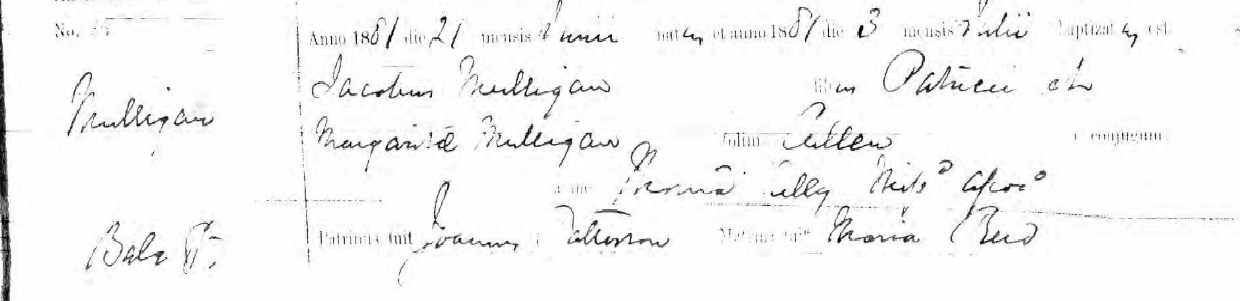 No.
Anno 1881 die 21 mensis Junii nat us et anno 1881 die 3 mensis Julii baptizat us est.
Mulligan
Jacobus Mulligan filius Patricii et
Margaritæ Mulligan olim Cullen conjugum
a me Thoma Miss° Apos°
Bala P.
Patrinus fuit Joannes Patterson Matrina fuit Maria Reid